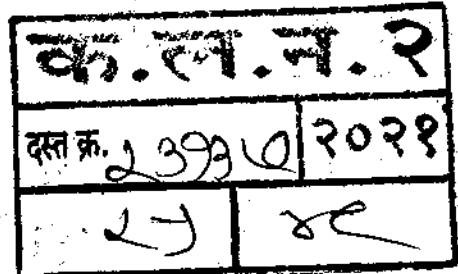 क.ल.न. २
दस्त क्र. २३१३७ २०२१
२५ ४९